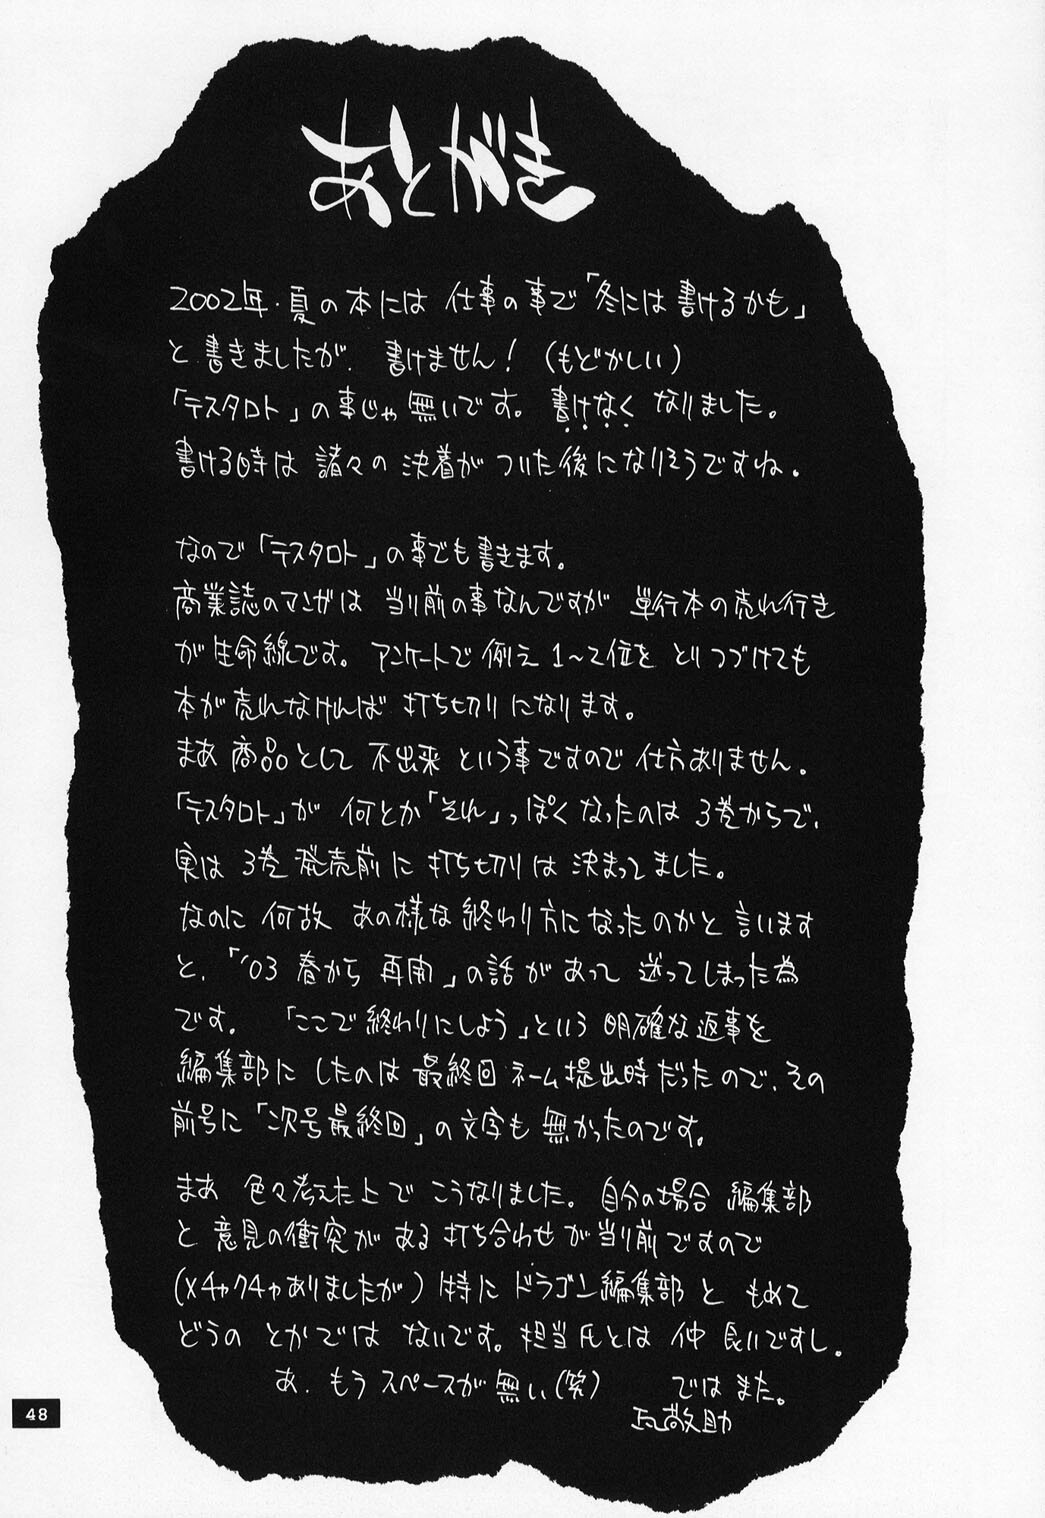 あとがき
2002年・夏の本には 仕事の事で「冬には書けるかも」
と書きましたが、書けません！（もどかしい）
「テスタロト」の事じゃ無いです。書けなくなりました。
書ける時は 諸々の決着がついた後になりそうですね。
なので「テスタロト」の事でも書きます。
商業誌のマンガは 当り前の事なんですが 単行本の売れ行き
が生命線です。アンケートで例え1〜2位をとりつづけても
本が売れなければ打ち切りになります。
まあ商品として不出来という事ですので仕方ありません。
「テスタロト」が何とか「それ」っぽくなったのは3巻からで、
実は3巻発売前に打ち切りは決まってました。
なのに何故あの様な終わり方になったのかと言います
と、「'03春から再開」の話があって迷ってしまった為
です。 「ここで終わりにしよう」という明確な返事を
編集部にしたのは最終回ネーム提出時だったので、その
前号に「次号最終回」の文字も無かったのです。
まあ 色々考えた上でこうなりました。自分の場合 編集部
と意見の衝突がある打ち合わせが当り前ですので
（メチャクチャありましたが）特にドラゴン編集部ともめて
どうのとかではないです。担当氏とは仲良いですし。
あ、もうスペースが無い（笑） ではまた。
三部敬助
48